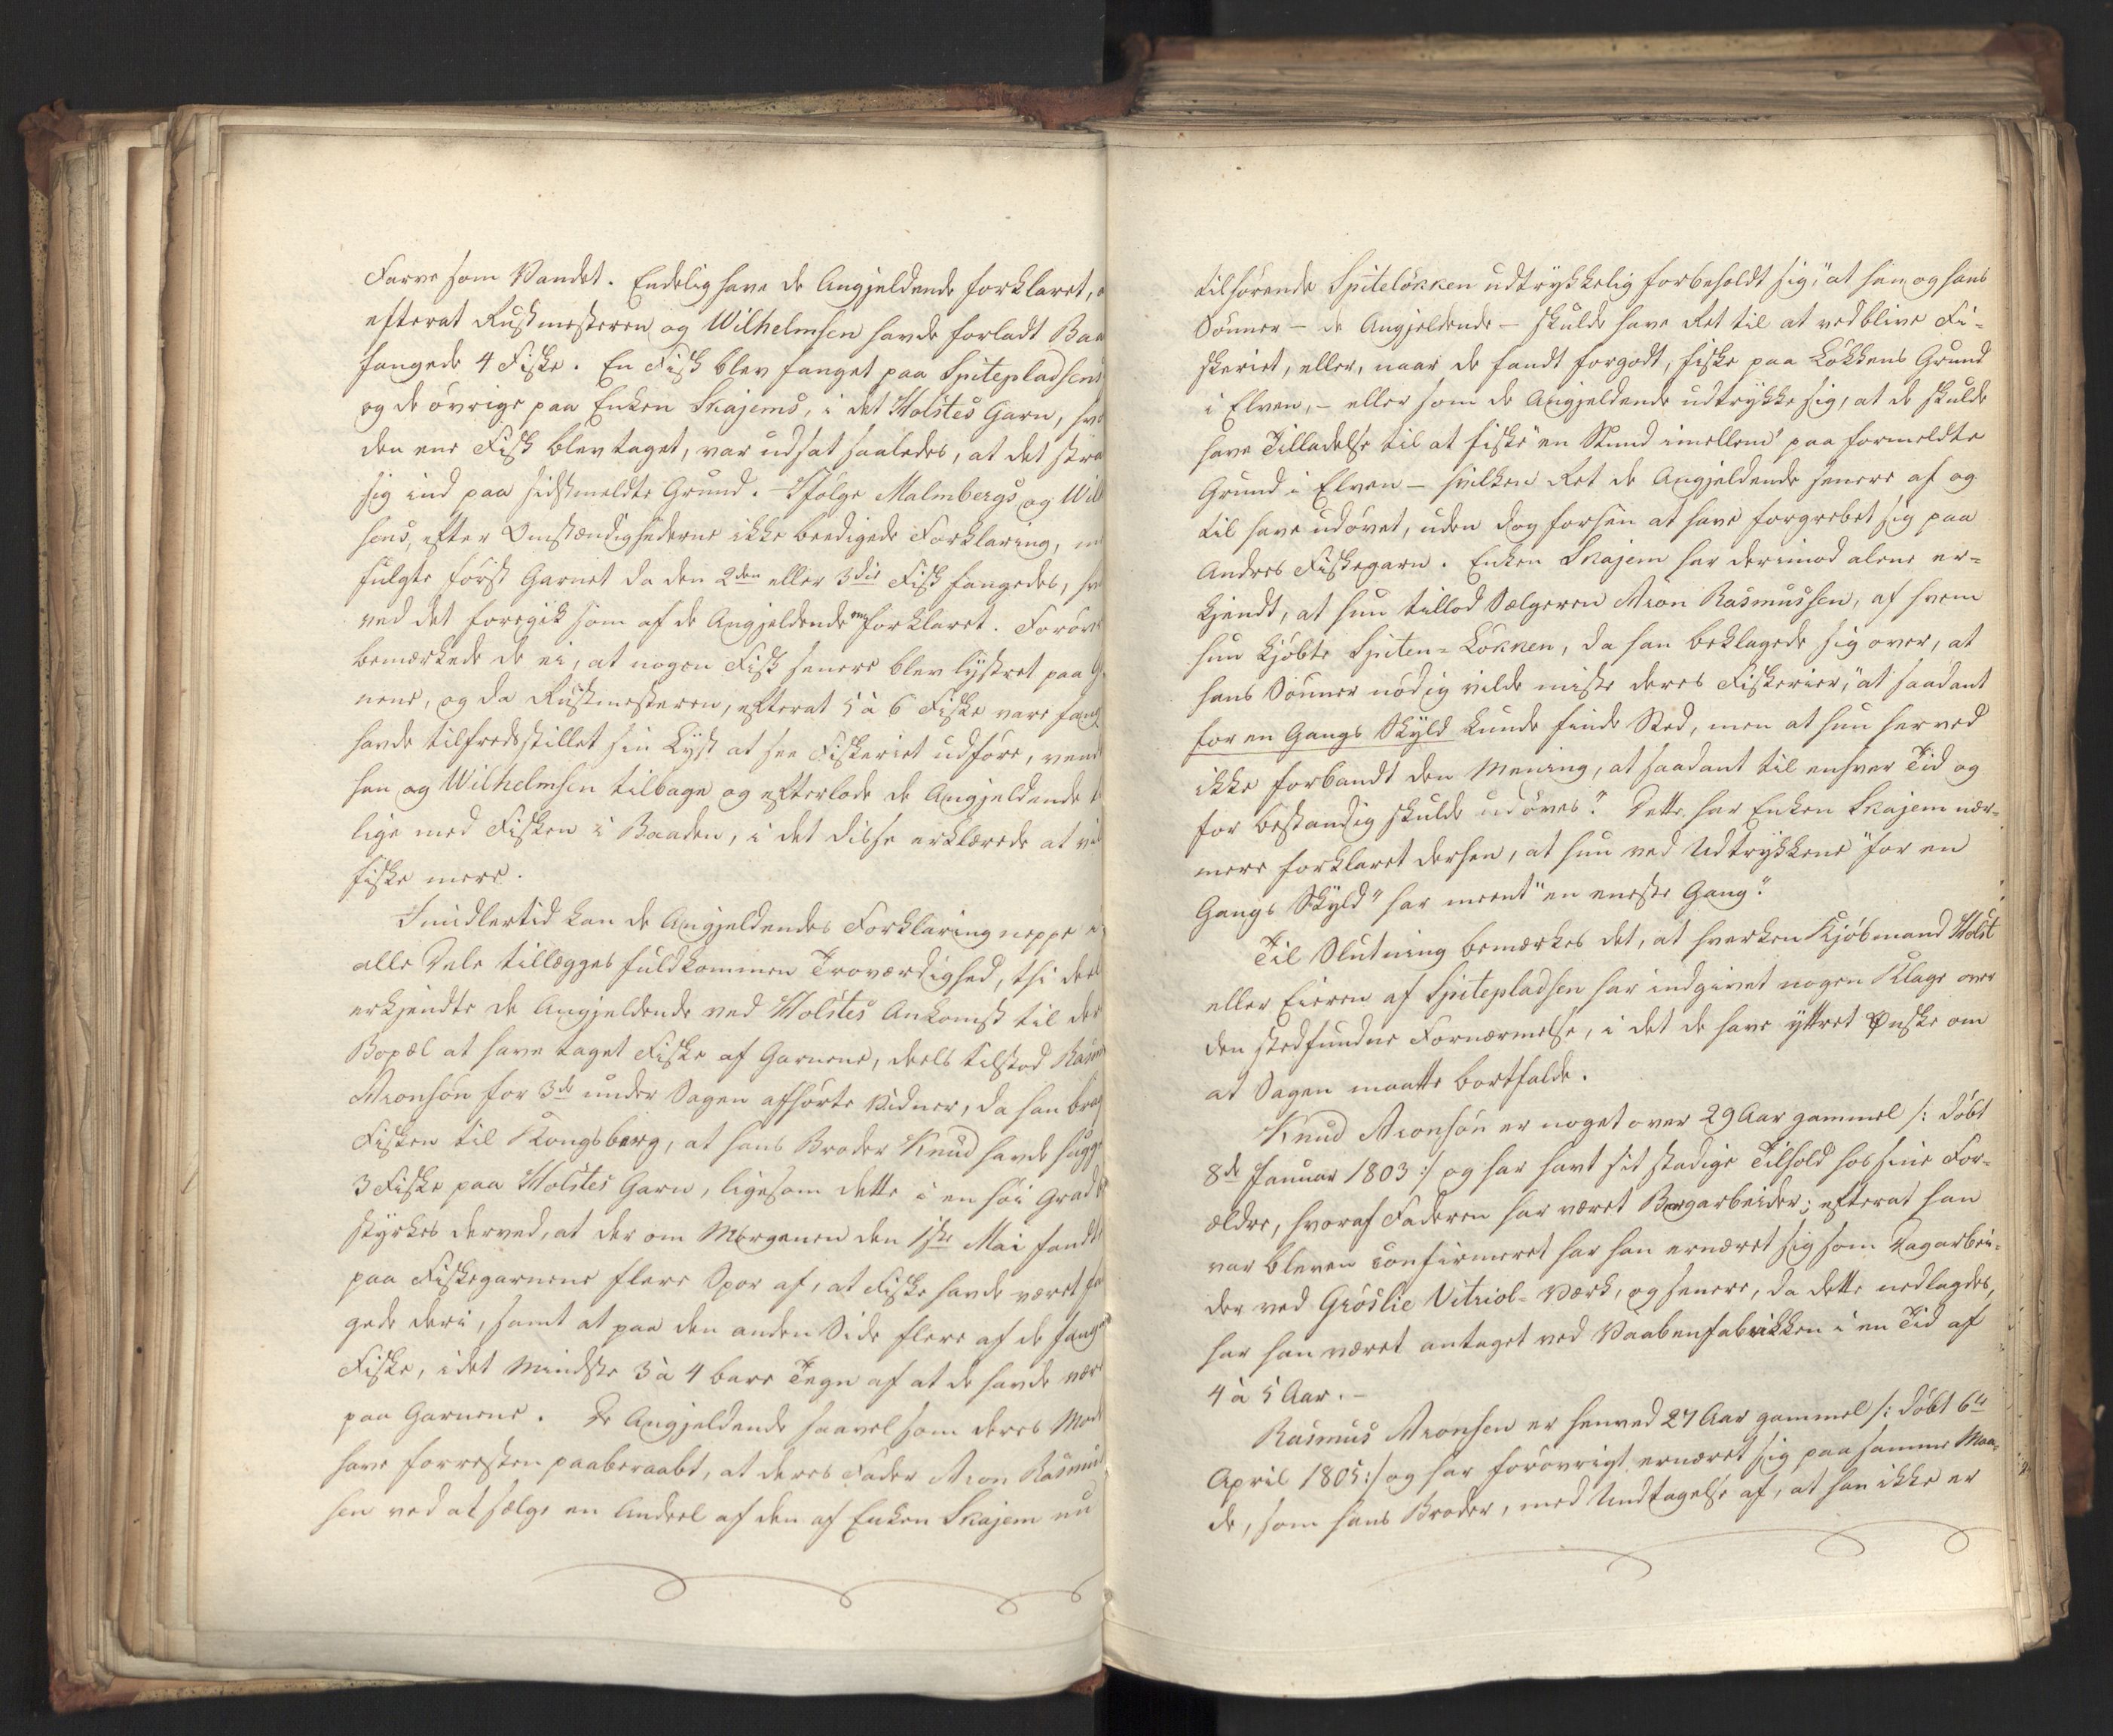 Farve som Vandet. Endelig have de Angjeldende forklaret,
efterat Rustmesteren og Wilhelmsen havde forladt Baa
fangede 4 Fiske. En Fisk blev fanget paa Spitepladsens
og de övrige paa Enken Skajems, i det Holstes Garn, hvo
den ene Fisk blev taget, var udsat saaledes, at det stra
sig ind paa sidstmeldte Grund. - Ifølge Malmbergs og Wil
sens, efter Omstændighederne ikke beedigede Forklaring,
fulgte först Garnet da den 2den eller 3die Fisk fangedes, hvo
ved det foregik som af de Angjeldende forklaret. Foröv
bemærkede de ei, at nogen Fisk senere blev lystret paa G
nene, og da Rustmesteren, efterat 5 à 6 Fiske vare fang
havde tilfredsstillet sin Lyst at see Fiskeriet udföre, vend
han og Wilhelmsen tilbage og efterlode de Angjeldende
lige med Fisken i Baaden, i det disse erklærede at vil
fiske mere.
Imidlertid kan de Angjeldendes Forklaring neppe
alle Dele tillægges fuldkommen Troværdighed, thi deel
erkjendte de Angjeldende ved Holstes Ankomst til der
Bopæl at have taget Fiske af Garnene, deels tilstod Rasm
Aronsön for 3de under Sagen afhörte Vidner, da han brag
Fisken til Kongsberg, at hans Broder Knud havde hugge
3 Fiske paa Holstes Garn, ligesom dette i en höi Grad
styrkes derved, at der om Morgenen den 1ste Mai fandtes
paa Fiskegarnene flere Spor af, at Fiske havde været fan
gede deri, samt at paa den anden Side flere af de fang
Fiske, idet mindste 3 à 4 bare Tegn af at de havde vær
paa Garnene. De Angjeldende saavel som deres Mod
have forresten paaberaabt, at deres Fader Aron Rasmus
sen ved at sælge en Andeel af den af Enken Skajem nu
tilhörende Spitelökken udtrykkelig forbeholdt sig, "at han og hans
Sönner - de Angjeldende - skulde have Ret til at vedblive Fi-
skeriet, eller, naar de fandt forgodt, fiske paa Lökkens Grund
i Elven, - eller som de Angjeldende udtrykke sig, at de skulde
have Tilladelse til at fiske "en Stund imellem" paa formeldte
Grund i Elven - hvilken Ret de Angjeldende senere af og
til have udövet, uden dog forhen at have forgrebet sig paa
Andres Fiskegarn. Enken Skajem har derimod alene er-
kjendt, at hun tillod Sælgeren Aron Rasmussen, af hvem
hun kjöbte Spiten-Lökken, da han beklagede sig over, at
hans Sönner nödig vilde miste deres Fiskerier, "at saadant
for en Gangs Skyld kunde finde Sted, men at hun herved
ikke forbandt den Mening, at saadant til enhver Tid og
for bestandig skulde udöves." Dette har Enken Skajem nær-
mere forklaret derhen, at hun ved Udtrykkene "for en
Gangs Skyld" har meent "en eneste Gang".
Til Slutning bemærkes det, at hverken Kjöbmand Holst
eller Eieren af Spitepladsen har indgivet nogen Klage over
den stedfundne Fornærmelse, i det de have yttret Ønske om
at Sagen maatte bortfalde.
Knud Aronsön er noget over 29 Aar gammel /: döbt
8de Januar 1803 :/ og har havt sit stadige Tilhold hos sine For-
ældre, hvoraf Faderen har været Bergarbeider; efterat han
var bleven confirmeret har han ernæret sig som Dagarbei-
der ved Gröslie Vitriol-Værk, og senere, da dette nedlagdes,
har han været antaget ved Vaabenfabrikken i en Tid af
4 à 5 Aar. -
Rasmus Aronsen er henved 27 Aar gammel /: döbt 6te
April 1805 :/ og har forövrigt ernæret sig paa samme Maa-
de, som hans Broder, med Undtagelse af, at han ikke er